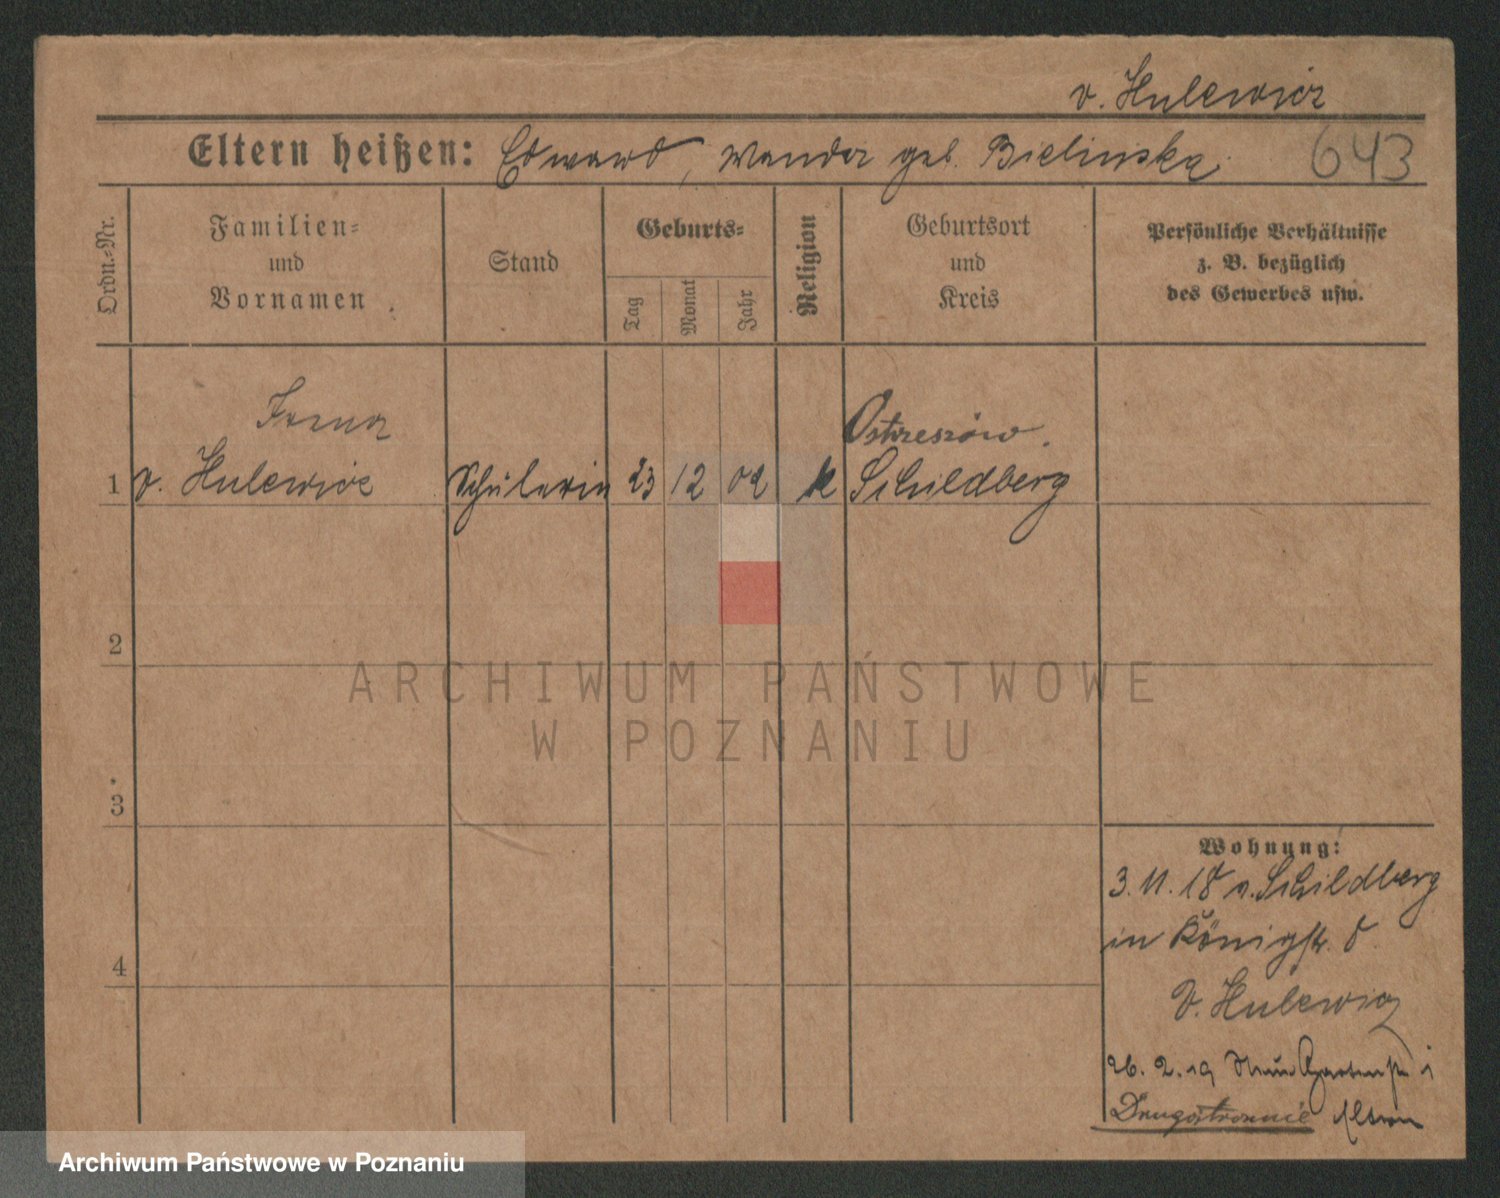 v. Hulewicz
Eltern heißen: Edward, Wanda geb. Bielinska
643
Ordn.-Nr.
Familien-
und
Vornamen
Stand
Geburts-
Tag
Monat
Jahr
Religion
Geburtsort
und
Kreis
Persönliche Verhältnisse
z. B. bezüglich
des Gewerbes usw.
Ostrzeszów.
1 v. Hulewicz Schülerin 23 12 02 k Schildberg
2
ARCHIWUM PAŃSTWOWE
W POZNANIU
3
Wohnung:
3. 11. 18 v. Schildberg
in Königstr. 8
4
v. Hulewicz
26. 2. 19 Gartenstr 1
Drugostronnie
Archiwum Państwowe w Poznaniu